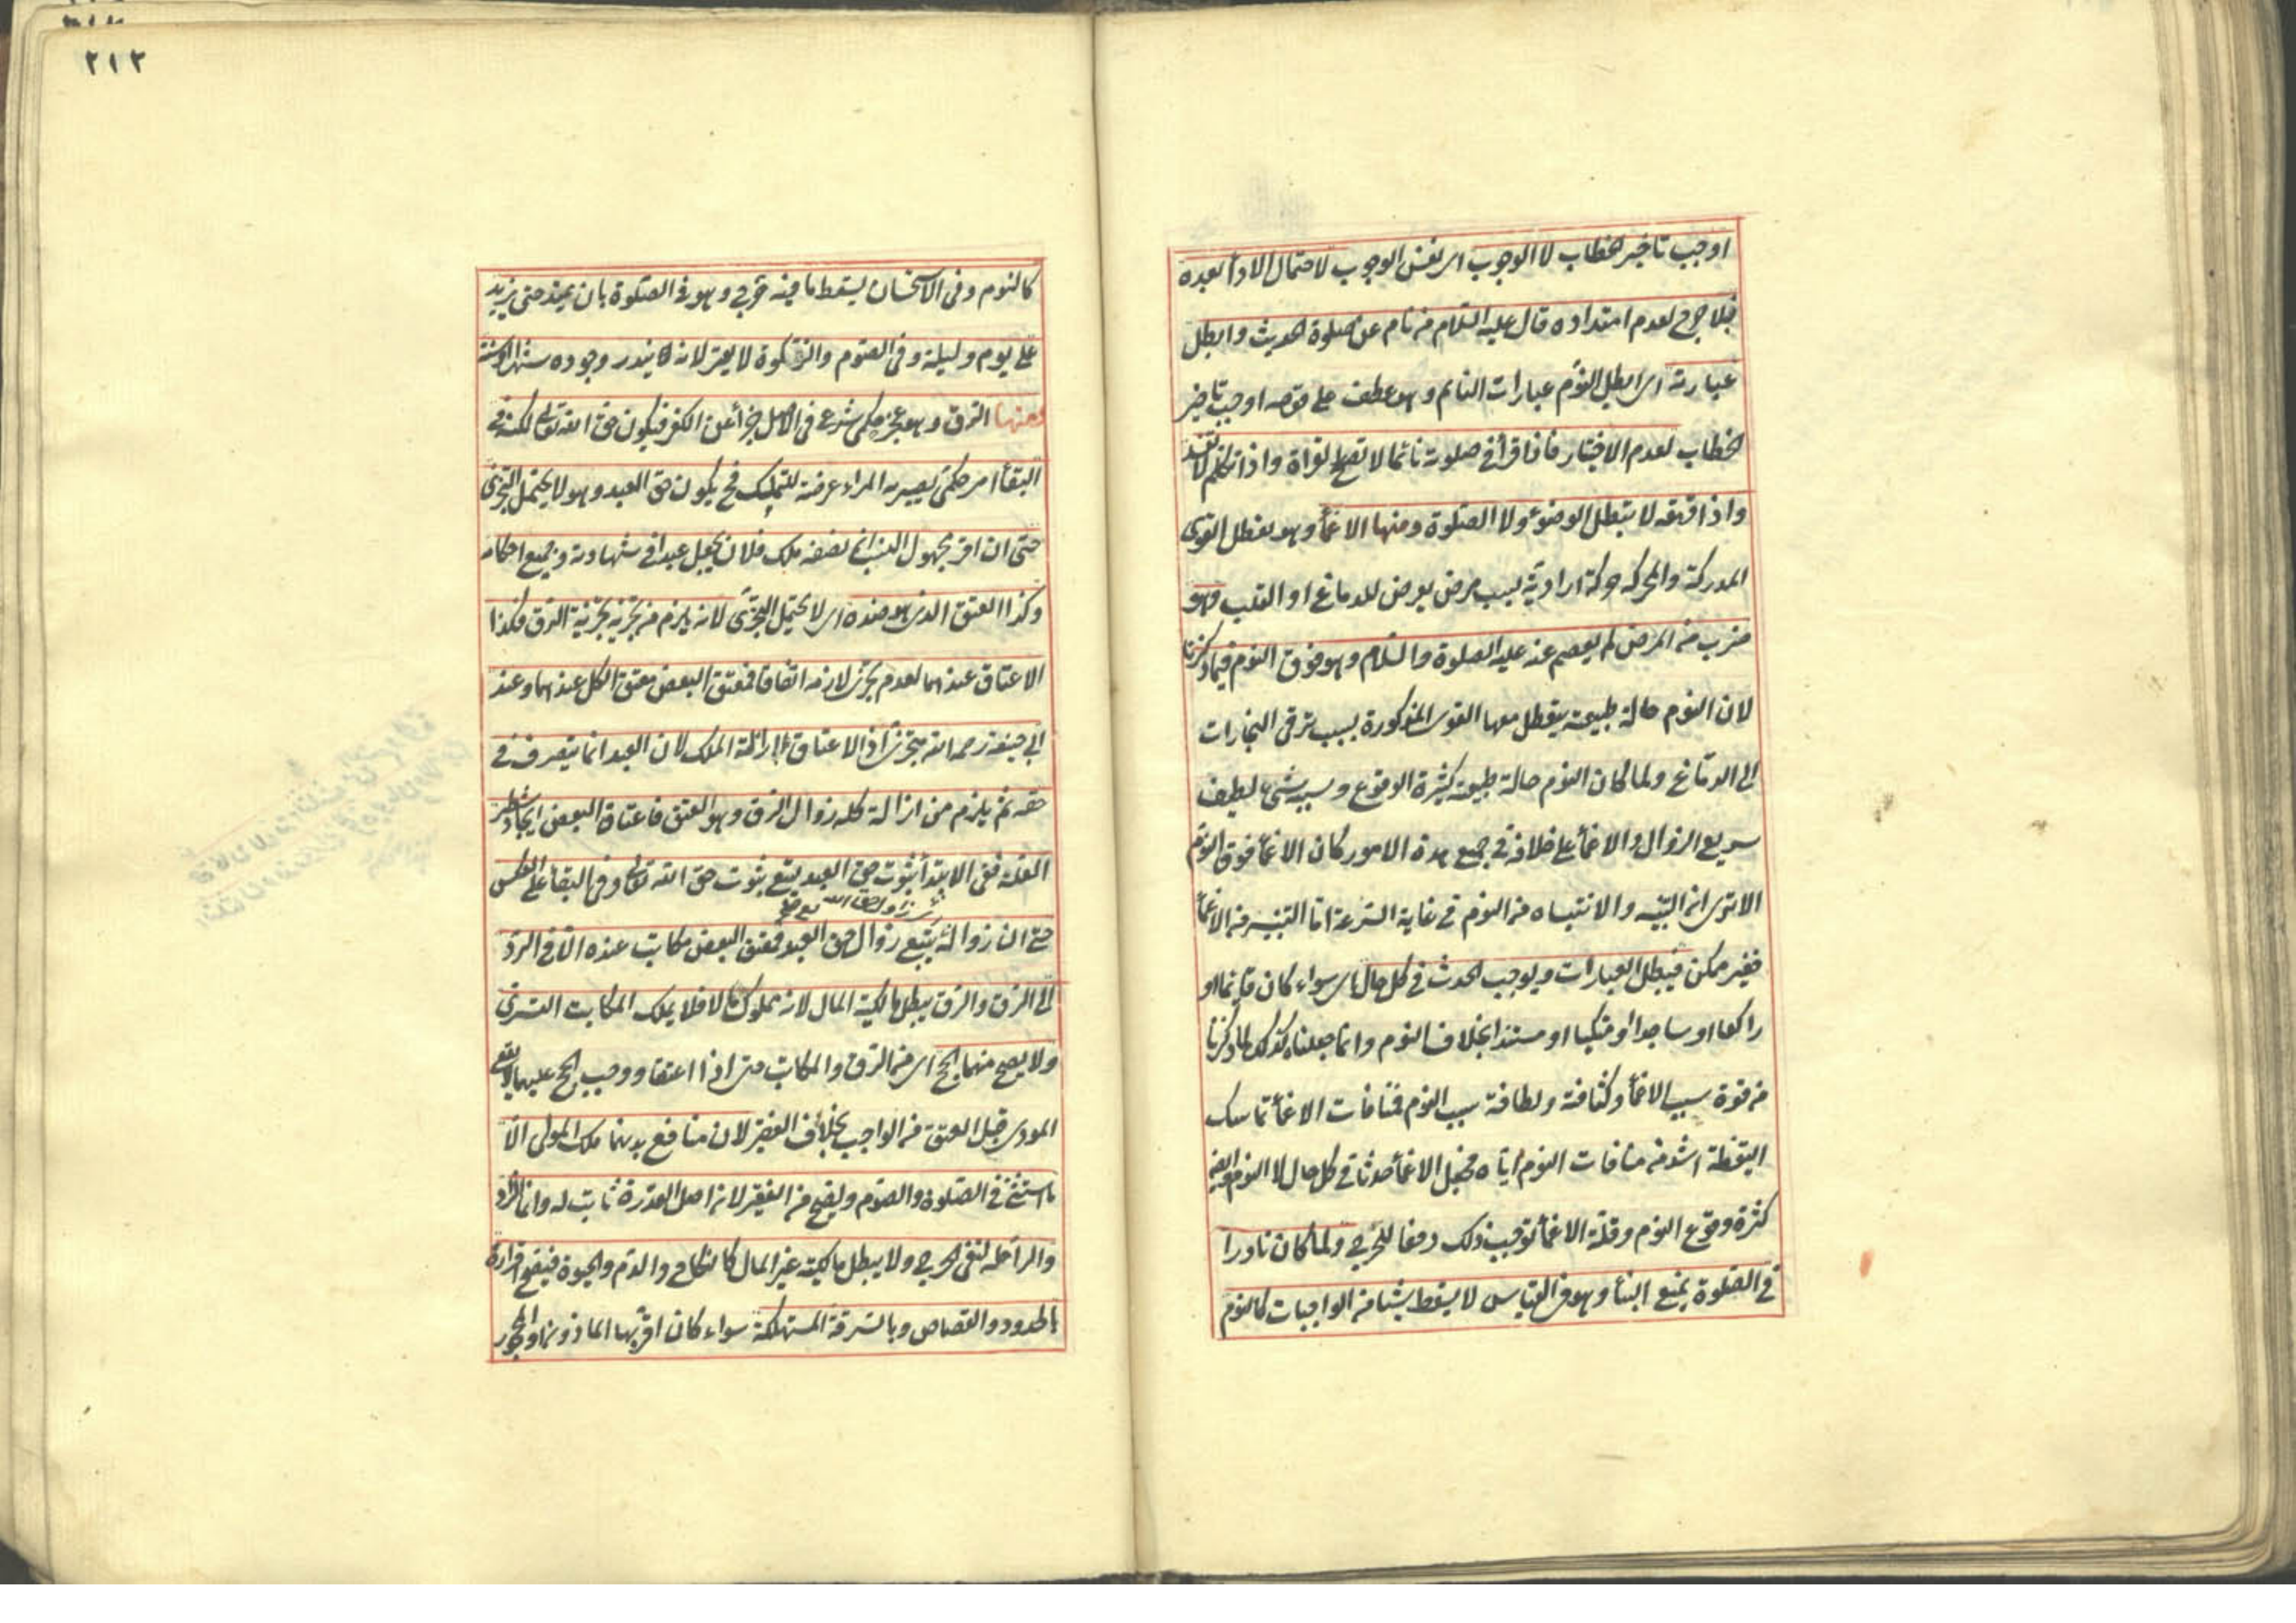 اوجب تاخير الخطاب لا الوجوب اى نفس الوجوب لاحتمال الاداء بعده
فلا حرج لعدم امتداده قال عليه السلام من نام عن صلوة الحديث وابطل
عبارته اى ابطل النوم عبارات النائم وهو عطف على قوله اوجب تاخير
الخطاب لعدم الاختيار فاذا قرأ فى صلوته نائما لا تصح القراة واذا تكلم لا تفسد
واذا قهقه لا يبطل الوضوء ولا الصلوة ومنها الاغماء وهو تعطل القوى
المدركة والمحركة حركة ارادية بسبب مرض يعرض للدماغ او القلب وهو
ضرب من المرض لم يعصم عنه عليه الصلوة والسلام وهو فوق النوم فيما ذكرنا
لان النوم حالة طبيعية يتعطل معها القوى المذكورة بسبب ترقى البخارات
الى الدماغ ولما كان النوم حالة طبيعية كثيرة الوقوع وسببه شىء لطيف
سريع الزوال والاغماء على خلافه فى جميع هذه الامور كان الاغماء فوق النوم
الا ترى ان التنبيه والانتباه من النوم فى غاية السرعة اما التنبيه من الاغماء
فغير ممكن فيبطل العبارات ويوجب الحدث فى كل حال اى سواء كان قايما او
راكعا او ساجدا او متكيا او مستندا بخلاف النوم وانما جعلناه كذلك لما ذكرنا
من قوة سبب الاغماء وكثافته ولطافة سبب النوم فمنافات الاغماء تماسك
اليقظة اشد من منافات النوم اياه فجعل الاغماء حدثا فى كل حال لا النوم
كثرة وقوع النوم وقلة الاغماء توجب ذلك دفعا للحرج ولما كان نادرا
فى الصلوة يمنع البناء وهو فى القياس لا يسقط شيئا من الواجبات كالنوم
٢١٢
كالنوم وفى الاستحسان يسقط ما فيه حرج وهو فى الصلوة بان يمتد حتى يزيد
على يوم وليلة وفى الصوم والزكوة لا يعتبر لانه يندر وجوده شهرا او سنة
ومنها الرق وهو عجز حكمى شرع فى الاصل جزاء عن الكفر فيكون حق الله تعالى لكنه فى
البقاء امر حكمى يصير به المراء عرضة للتملك فح يكون حق العبد وهو لا يحتمل التجزى
حتى ان اقر مجهول النسب ان نصفه ملك فلان يجعل عبدا فى شهادته وجميع احكامه
وكذا العتق الذى هو ضده اى لا يحتمل التجزى لانه يلزم من تجزيه تجزية الرق فكذا
الاعتاق عندهما لعدم تجزى لازمه اتفاقا فمعتق البعض معتق الكل عندهما وعند
ابى حنيفة رحمه الله متجز اذ الاعتاق ازالة الملك لان العبد انما يتصرف فى
حقه ثم يلزم من ازالة كله زوال الرق وهو العتق فاعتاق البعض ايجاد شطر
العلة ففى الابتداء ثبوت حق العبد يتبع ثبوت حق الله تعالى وفى البقاء على العكس
حتى ان زواله يتبع زوال حق العبد فمعتق البعض مكاتب عنده الا فى الرد
الى الرق والرق يبطل مالكية المال لانه مملوك مالا فلا يملك المكاتب التسرى
ولا يصح منهما الحج اى من الرق والمكاتب حتى اذا اعتقا ووجب الحج عليهما لا يقع
المودى قبل العتق من الواجب بخلاف الفقير لان منافع بدنهما ملك المولى الا
ما استثنى فى الصلوة والصوم ويصح من الفقير لان اصل القدرة ثابت له وانما الزاد
والراحلة لنفى الحرج ولا يبطل مالكية غير المال كالنكاح والدم والحيوة فيصح اقراره
بالحدود والقصاص وبالسرقة المستهلكة سواء كان اقر بها الماذون او المحجور